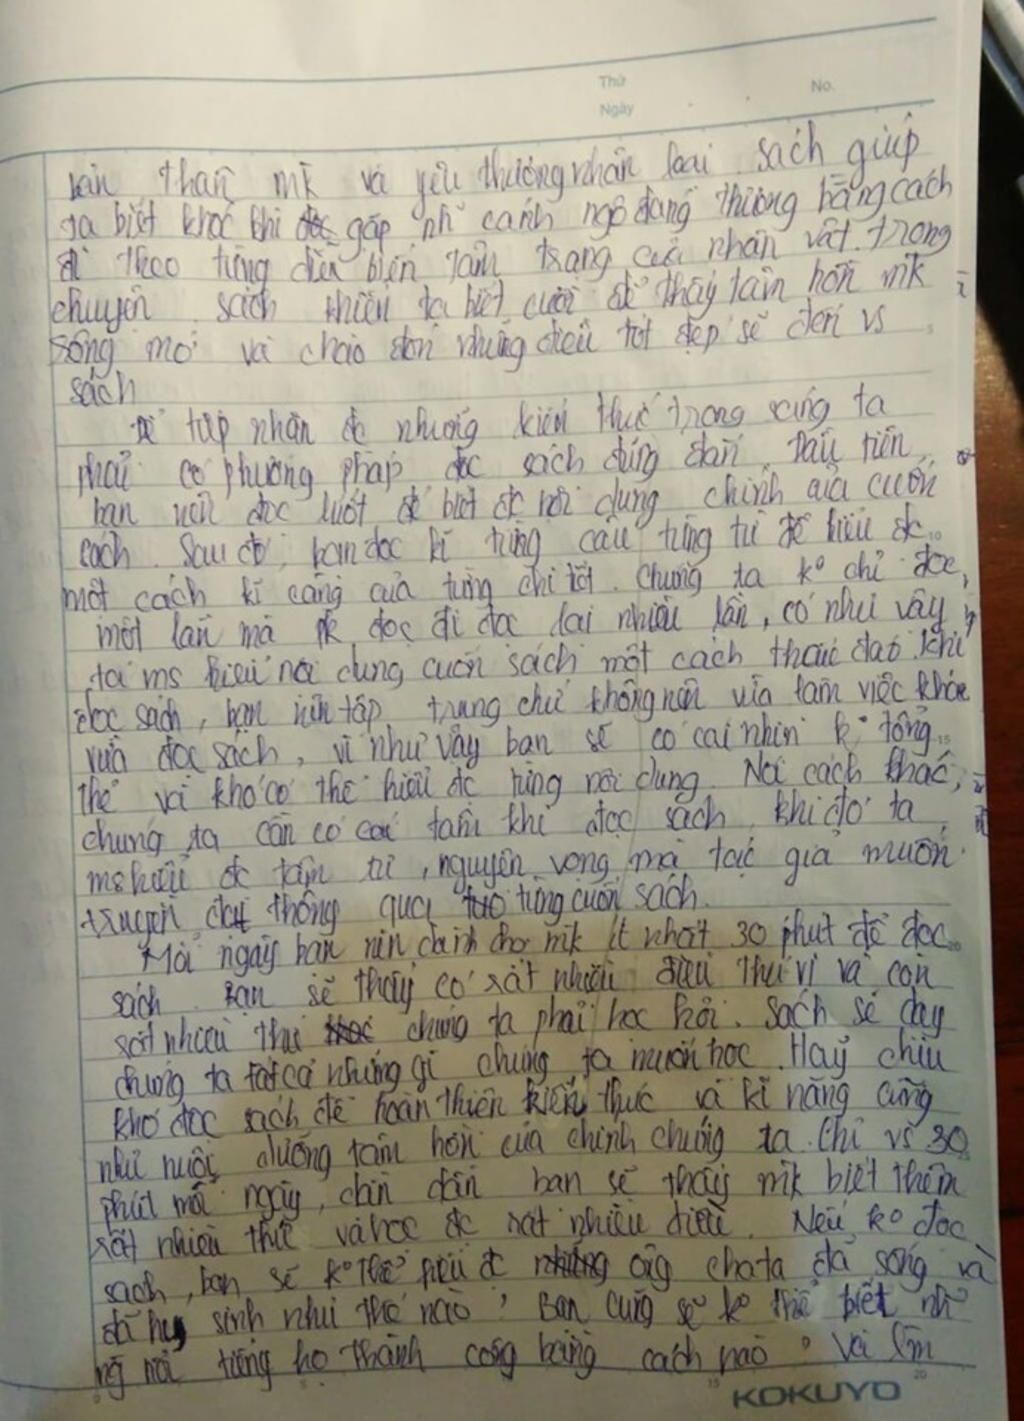 Thứ
No.
Ngày
bản thân mk và yêu thương nhân loại. Sách giúp
ta biết khóc khi gặp nh~ cảnh ngộ đáng thương bằng cách
đi theo từng diễn biến tâm trạng của nhân vật trong
chuyện. sách khiến ta biết cười để thấy tâm hồn mk
sống mơ và chào đón những điều tốt đẹp sẽ đến vs
sách
Để tiếp nhận đc những kiến thức trong ta
phải có phương pháp đọc sách đúng đắn. Đầu tiên,
bạn nên đọc lướt để biết đc nội dung chính của cuốn
sách. Sau đó, bạn đọc kĩ từng câu từng từ để hiểu đc
một cách kĩ càng của từng chi tiết. Chúng ta ko chỉ đọc
một lần mà pk đọc đi đọc lại nhiều lần, có như vậy
ta ms hiểu nội dung cuốn sách một cách thấu đáo. khi
đọc sách, bạn nên tập trung chứ không nên vừa làm việc khác
vừa đọc sách, vì như vậy bạn sẽ có cái nhìn ko tổng
thể và khó có thể hiểu đc từng nội dung. Nói cách khác,
chúng ta cần có cái tâm khi đọc sách, khi đó ta
ms hiểu đc tâm tư, nguyện vọng mà tác giả muốn
truyền đạt thông qua từng cuốn sách.
Mỗi ngày bạn nên dành cho mk ít nhất 30 phút để đọc
sách. Bạn sẽ thấy có rất nhiều điều thú vị và còn
rất nhiều thứ chúng ta phải học hỏi. Sách sẽ dạy
chúng ta tất cả những gì chúng ta muốn học. Hãy chịu
khó đọc sách để hoàn thiện kiến thức và kĩ năng cũng
như nuôi dưỡng tâm hồn của chính chúng ta. Chỉ vs 30
phút mỗi ngày, dần dần bạn sẽ thấy mk biết thêm
rất nhiều thứ và học đc rất nhiều điều. Nếu ko đọc
sách, bạn sẽ ko thể hiểu đc ông cha ta đã sống và
đã hy sinh như thế nào? Bạn cũng sẽ ko thể biết nh~
ng nổi tiếng họ thành công bằng cách nào? Và làm
KOKUYO